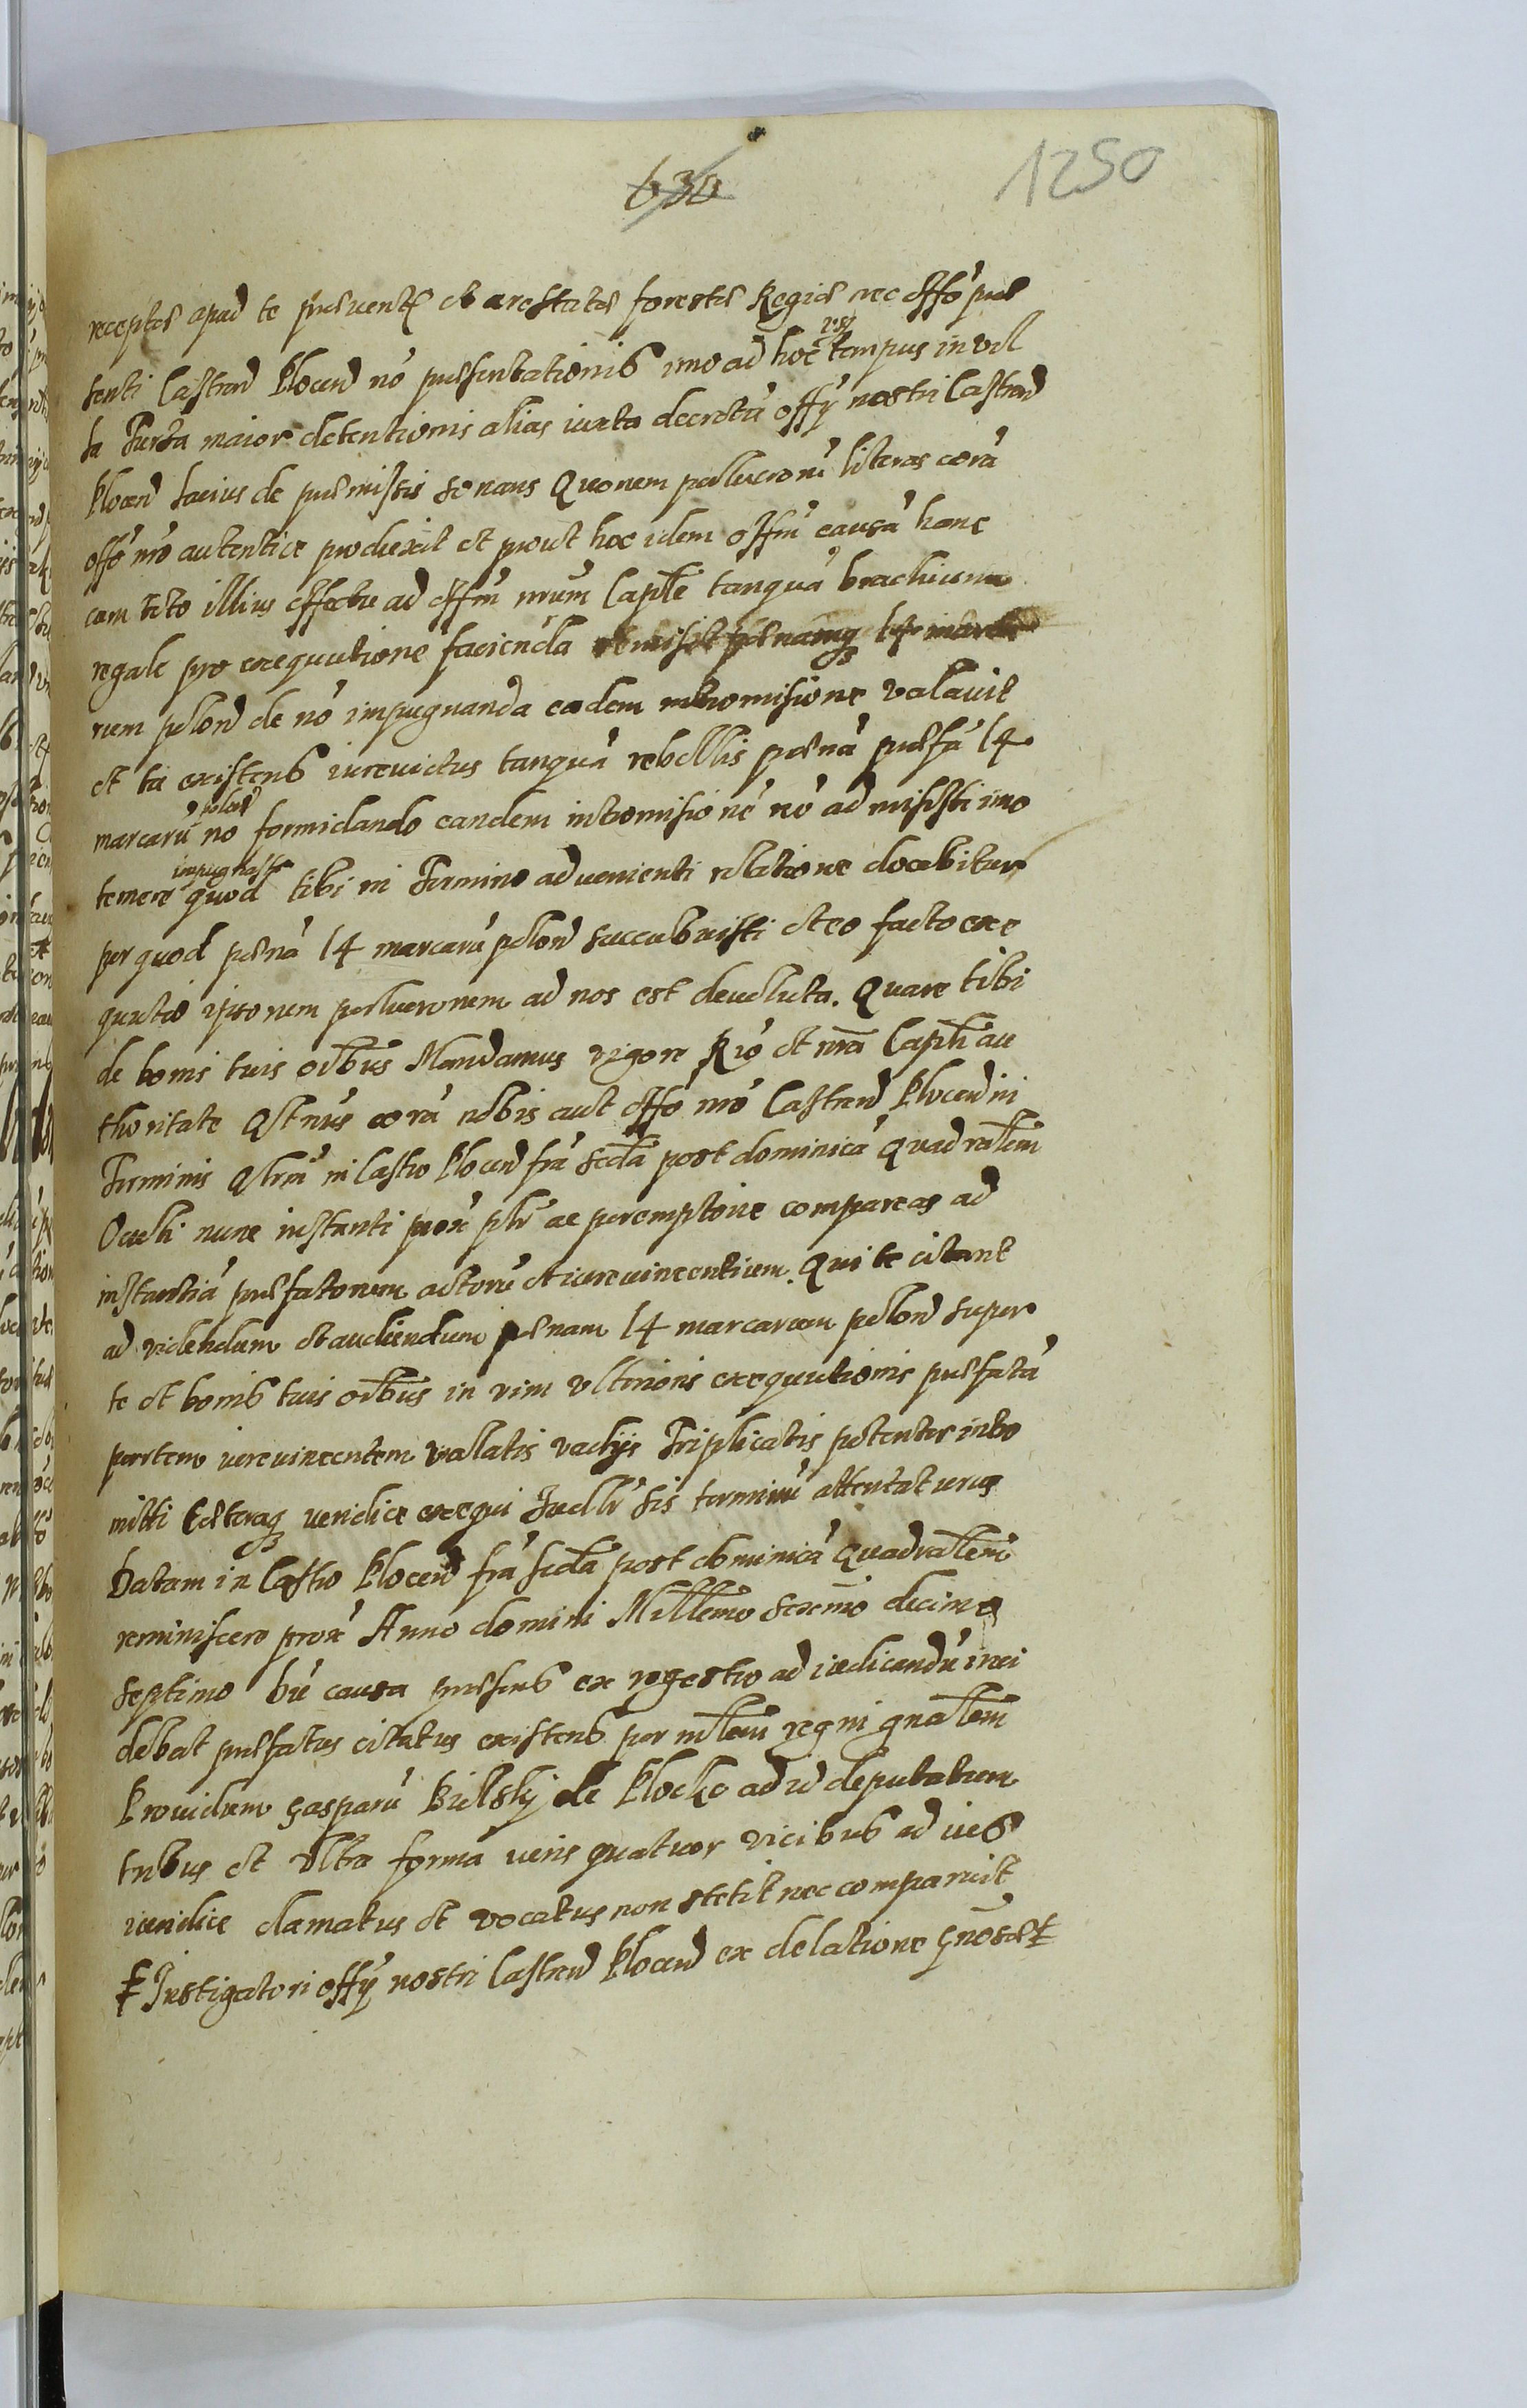 630
1250
receptas apud te præuent et arestatas forestæ Regiæ nec offõ præ
senti Castren Plocen nõ præsentationis imo ad hoc usq tempus in vil
la Turza maior detentionis alias iuxta decretũ offÿ nostri Castren
Plocen latius de præmissis sonans Quorum parlucrorũ literas corã
offõ nrõ autentice produxit et prout hoc idem offm causã hanc
cum toto illius effectu ad offm nrum Caplĕ tanquã brachium
regale pro exequutione facienda remisit pænamq 14 marca
rum polon de nõ impugnanda eadem intromisione valauit
et tu existens iurevictus tanquã rebellis pænã præfã 14
marcarũ polon nõ formidando eandem intromisionẽ nõ admisisti imo
temere impugnasti quod tibi in Termino advenienti relatione docebitur
per quod pænã 14 marcarũ polon succubuisti et eo facto exe
qutio ipsorum parlucrorum ad nos est deuoluta. Quare tibi
de bonis tuis oĩbus Mandamus vigore Riõ et nrã Caplĩ au
thoritate Qstnus corã nobis aut offõ nrõ Castren Plocen in
Terminis Qstrũ in Castro Plocen frã scda post dominicã Quadralem
Oculi nunc instanti prox plr ac peremptorie compareas ad
instantiã præfatorum actorũ et iurevincentium. Qui te citant
ad videndum et audiendum pænam 14 marcarum polon super
te et bonis tuis oĩbus in vim vlterioris exequutionis præfatã
partem iurevincentem valatis vadijs Triplicatis potenter intro
mitti Cæteraq iuridice exequi Iudlr sis terminũ attentaturus
Datam in Castro Plocen frã scda post dominicã Quadralem
reminiscere prox Anno domini Millemo sexcmo decimo
septimo bũ causa præsens ex regestro ad iudicandũ inci
debat præfatus citatus existens per mlem regni gnalem
Prouidum Gasparũ Bielsky de Plocko ad id deputatum
tribus et vltra formã iuris quatuor vicibus ad ius
iuridice clamatus et vocatus non stetit nec comparuit
Instigatori offÿ nostri Castren Plocen ex delatione Gnosæ